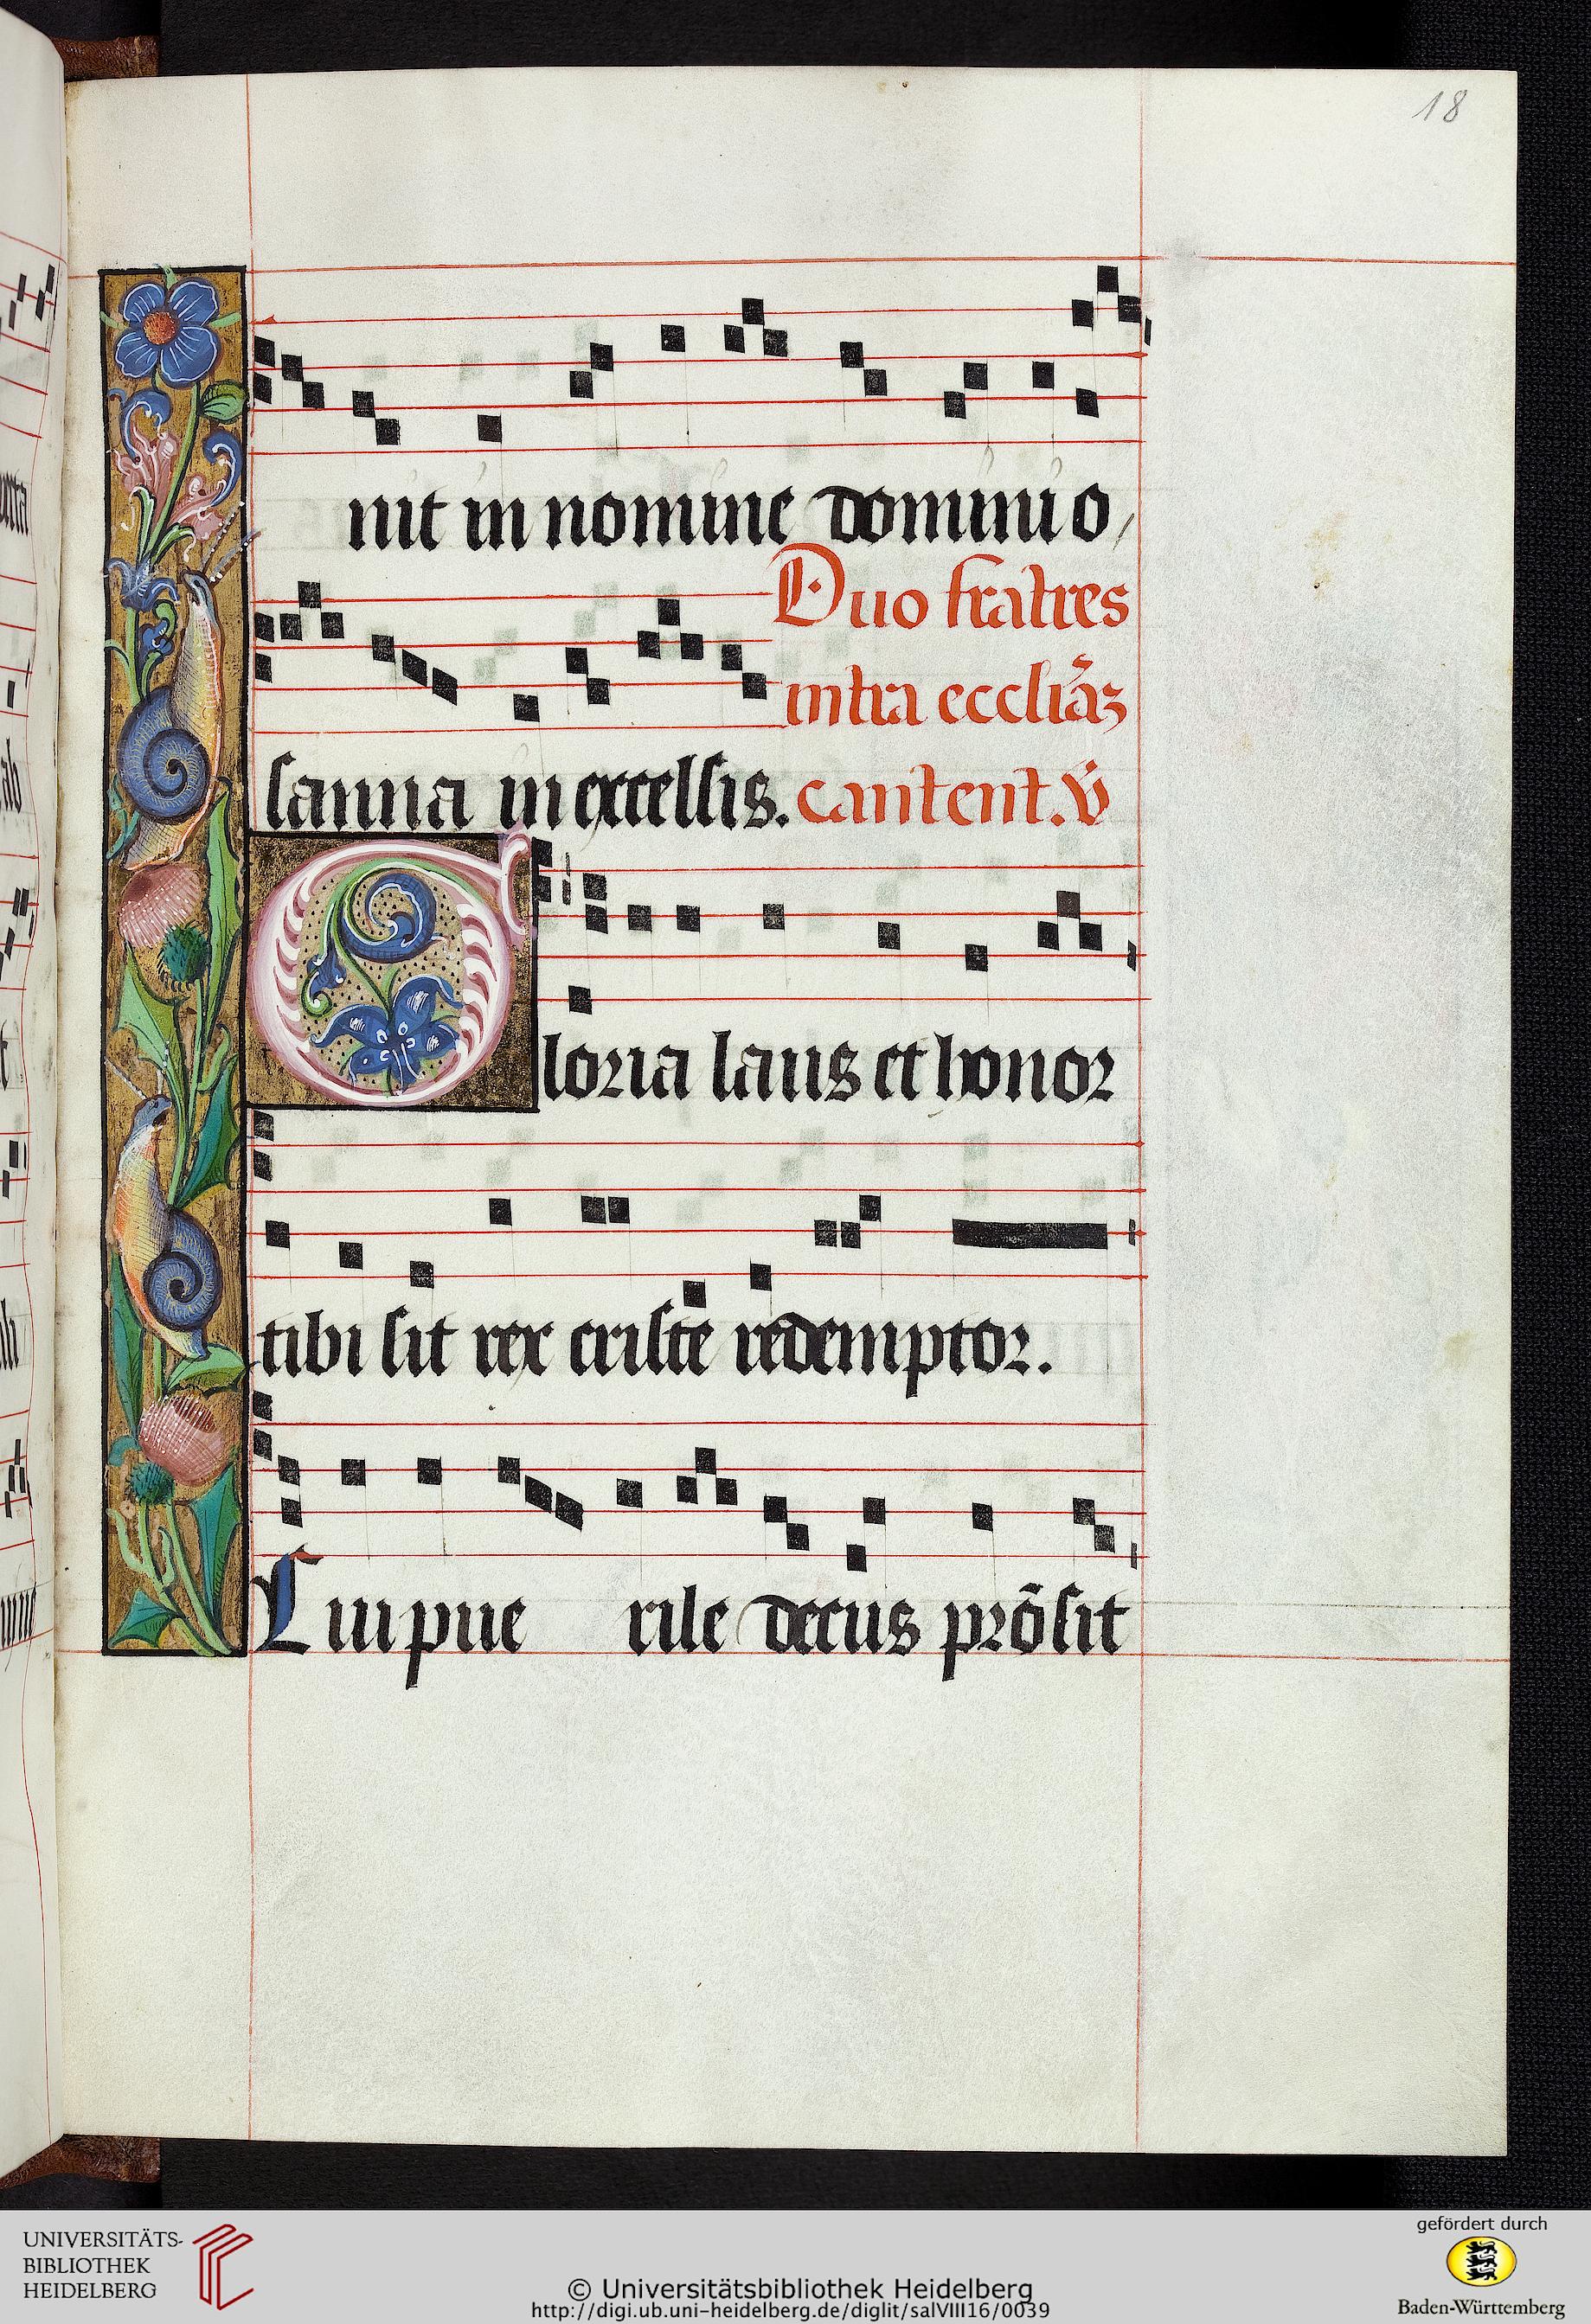 18
nit in nomine domini o,
Duo fratres
intra eccliãz
sanna in excelsis. cantent. v̇
Gloria laus et honor
tibi sit rex criste redemptor.
Cui pue rile decus prõsit
UNIVERSITÄTS-
BIBLIOTHEK
HEIDELBERG
© Universitätsbibliothek Heidelberg
http://digi.ub.uni-heidelberg.de/diglit/salVIII16/0039
gefördert durch
Baden-Württemberg